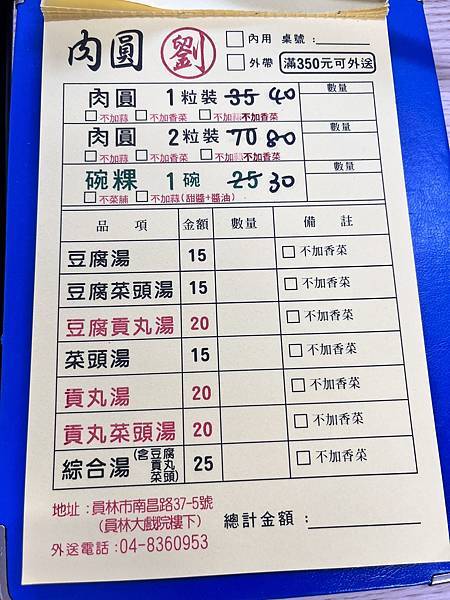 肉圓 劉 □內用 桌號：
□外帶 滿350元可外送
數量
肉圓 1粒裝 35 40
□不加蒜 □不加香菜 □不加蒜不加香菜
數量
肉圓 2粒裝 70 80
□不加蒜 □不加香菜 □不加蒜不加香菜
數量
碗粿 1碗 25 30
□不菜脯 □不加蒜(甜醬+醬油)
品項 金額 數量 備註
豆腐湯 15 □不加香菜
豆腐菜頭湯 15 □不加香菜
豆腐貢丸湯 20 □不加香菜
菜頭湯 15 □不加香菜
貢丸湯 20 □不加香菜
貢丸菜頭湯 20 □不加香菜
綜合湯(含豆腐貢丸菜頭) 25 □不加香菜
地址：員林市南昌路37-5號
(員林大戲院樓下)
總計金額：
外送電話：04-8360953